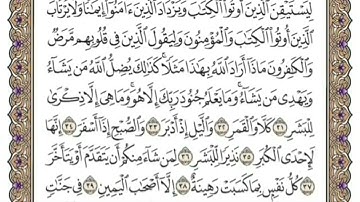 لِيَسْتَيْقِنَ ٱلَّذِينَ أُوتُوا۟ ٱلْكِتَٰبَ وَيَزْدَادَ ٱلَّذِينَ ءَامَنُوٓا۟ إِيمَٰنًا وَلَا يَرْتَابَ
ٱلَّذِينَ أُوتُوا۟ ٱلْكِتَٰبَ وَٱلْمُؤْمِنُونَ وَلِيَقُولَ ٱلَّذِينَ فِى قُلُوبِهِم مَّرَضٌ
وَٱلْكَٰفِرُونَ مَاذَآ أَرَادَ ٱللَّهُ بِهَٰذَا مَثَلًا كَذَٰلِكَ يُضِلُّ ٱللَّهُ مَن يَشَآءُ
وَيَهْدِى مَن يَشَآءُ وَمَا يَعْلَمُ جُنُودَ رَبِّكَ إِلَّا هُوَ وَمَا هِىَ إِلَّا ذِكْرَىٰ
لِلْبَشَرِ ٣١ كَلَّا وَٱلْقَمَرِ ٣٢ وَٱلَّيْلِ إِذْ أَدْبَرَ ٣٣ وَٱلصُّبْحِ إِذَآ أَسْفَرَ ٣٤ إِنَّهَا
لَإِحْدَى ٱلْكُبَرِ ٣٥ نَذِيرًا لِّلْبَشَرِ ٣٦ لِمَن شَآءَ مِنكُمْ أَن يَتَقَدَّمَ أَوْ يَتَأَخَّرَ
٣٧ كُلُّ نَفْسٍۭ بِمَا كَسَبَتْ رَهِينَةٌ ٣٨ إِلَّآ أَصْحَٰبَ ٱلْيَمِينِ ٣٩ فِى جَنَّٰتٍ